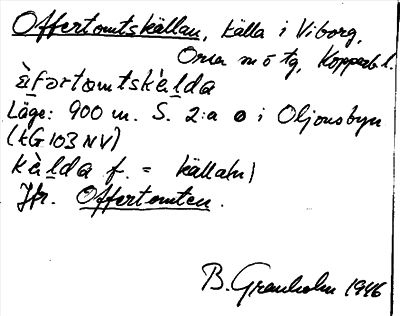 Offertomtskällan, källa i Viborg,
Orsa s o tg, Kopparb. l.
ɑ̀fərtomtskɛ̀lda
Läge: 900 m. S. 2:a o i Oljonsbyn
(LG 103 NV)
kɛ̀lda f. = källa(n)
Jfr. Offertomten.
B. Granholm 1946